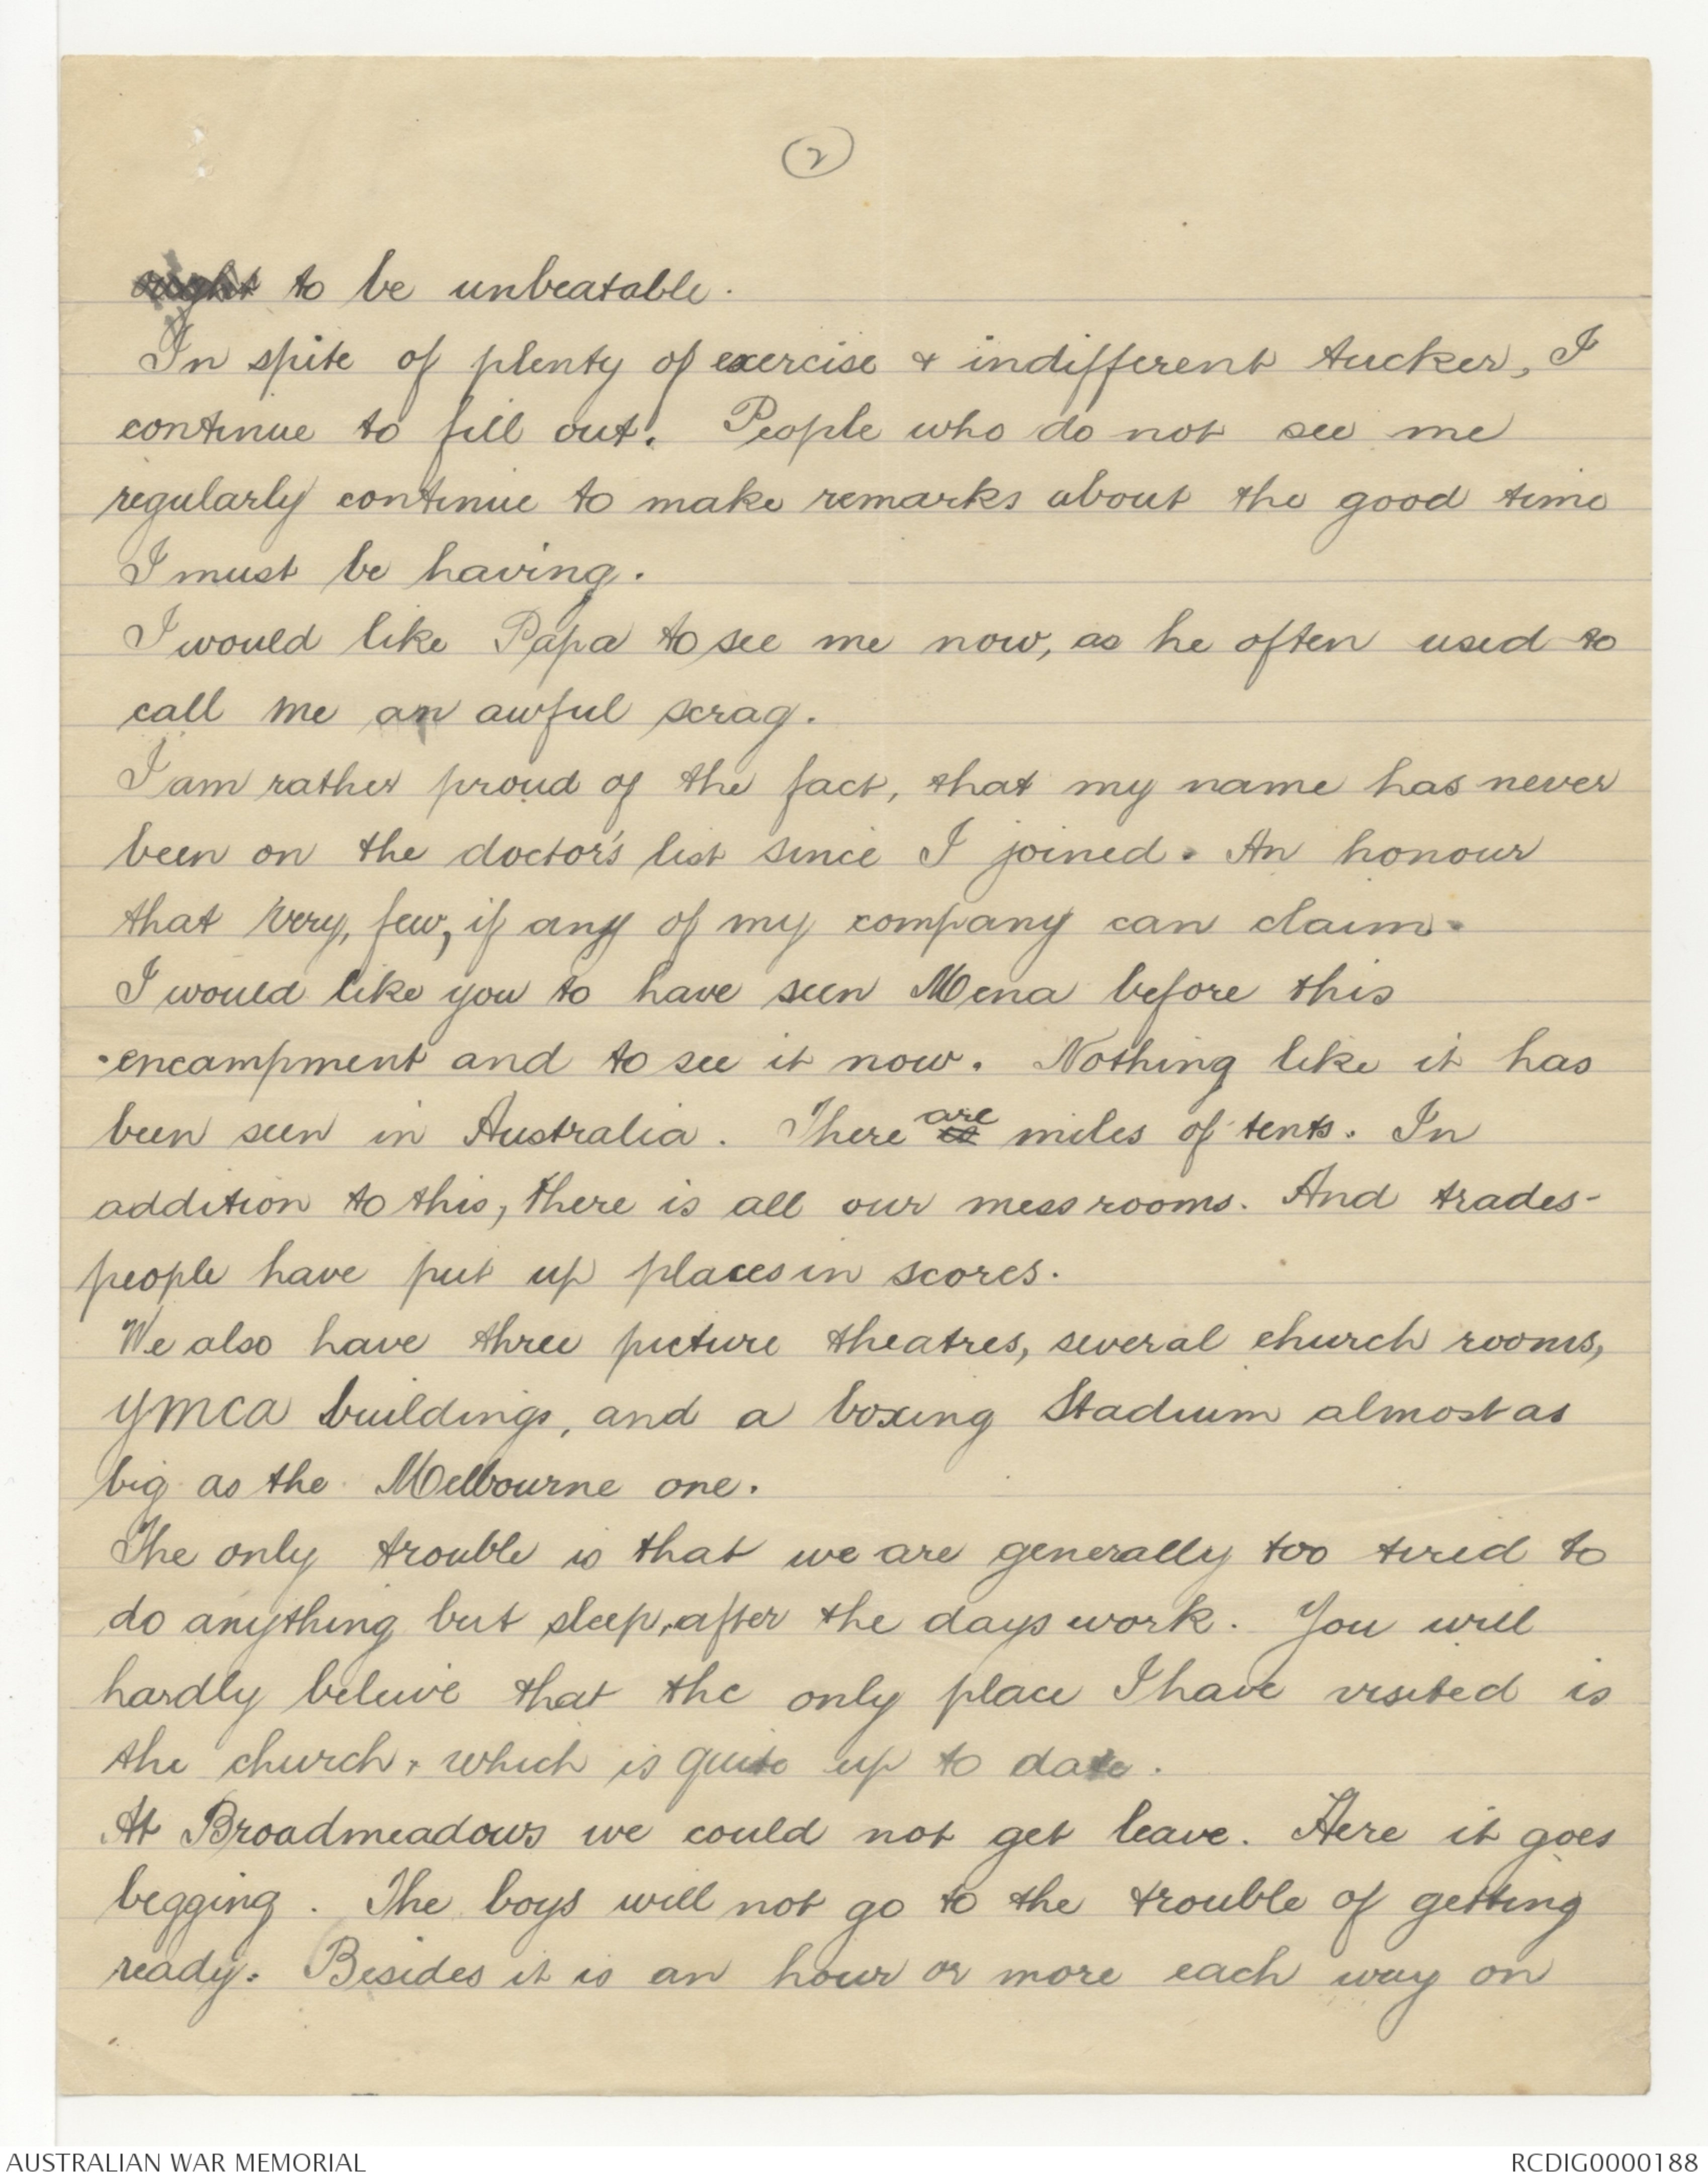 2
ought to be unbeatable.
In spite of plenty of exercise & indifferent tucker, I
continue to fill out. People who do not see me
regularly continue to make remarks about the good time
I must be having.
I would like Papa to see me now, as he often used to
call me an awful scrag.
I am rather proud of the fact, that my name has never
been on the doctor's list since I joined. An honour
that very, few, if any of my company can claim.
I would like you to have seen Mena before this
encampment and to see it now. Nothing like it has
been seen in Australia. There are is miles of tents. In
addition to this, there is all our mess rooms. And trades-
people have put up places in scores.
We also have three picture theatres, several church rooms,
YMCA buildings, and a boxing Stadium almost as
big as the Melbourne one.
The only trouble is that we are generally too tired to
do anything but sleep, after the days work. You will
hardly beleive that the only place I have visited is
the church, which is quite up to date.
At Broadmeadows we could not get leave. Here it goes
begging. The boys will not go to the trouble of getting
ready. Besides it is an hour or more each way on
AUSTRALIAN WAR MEMORIAL
RCDIG0000188